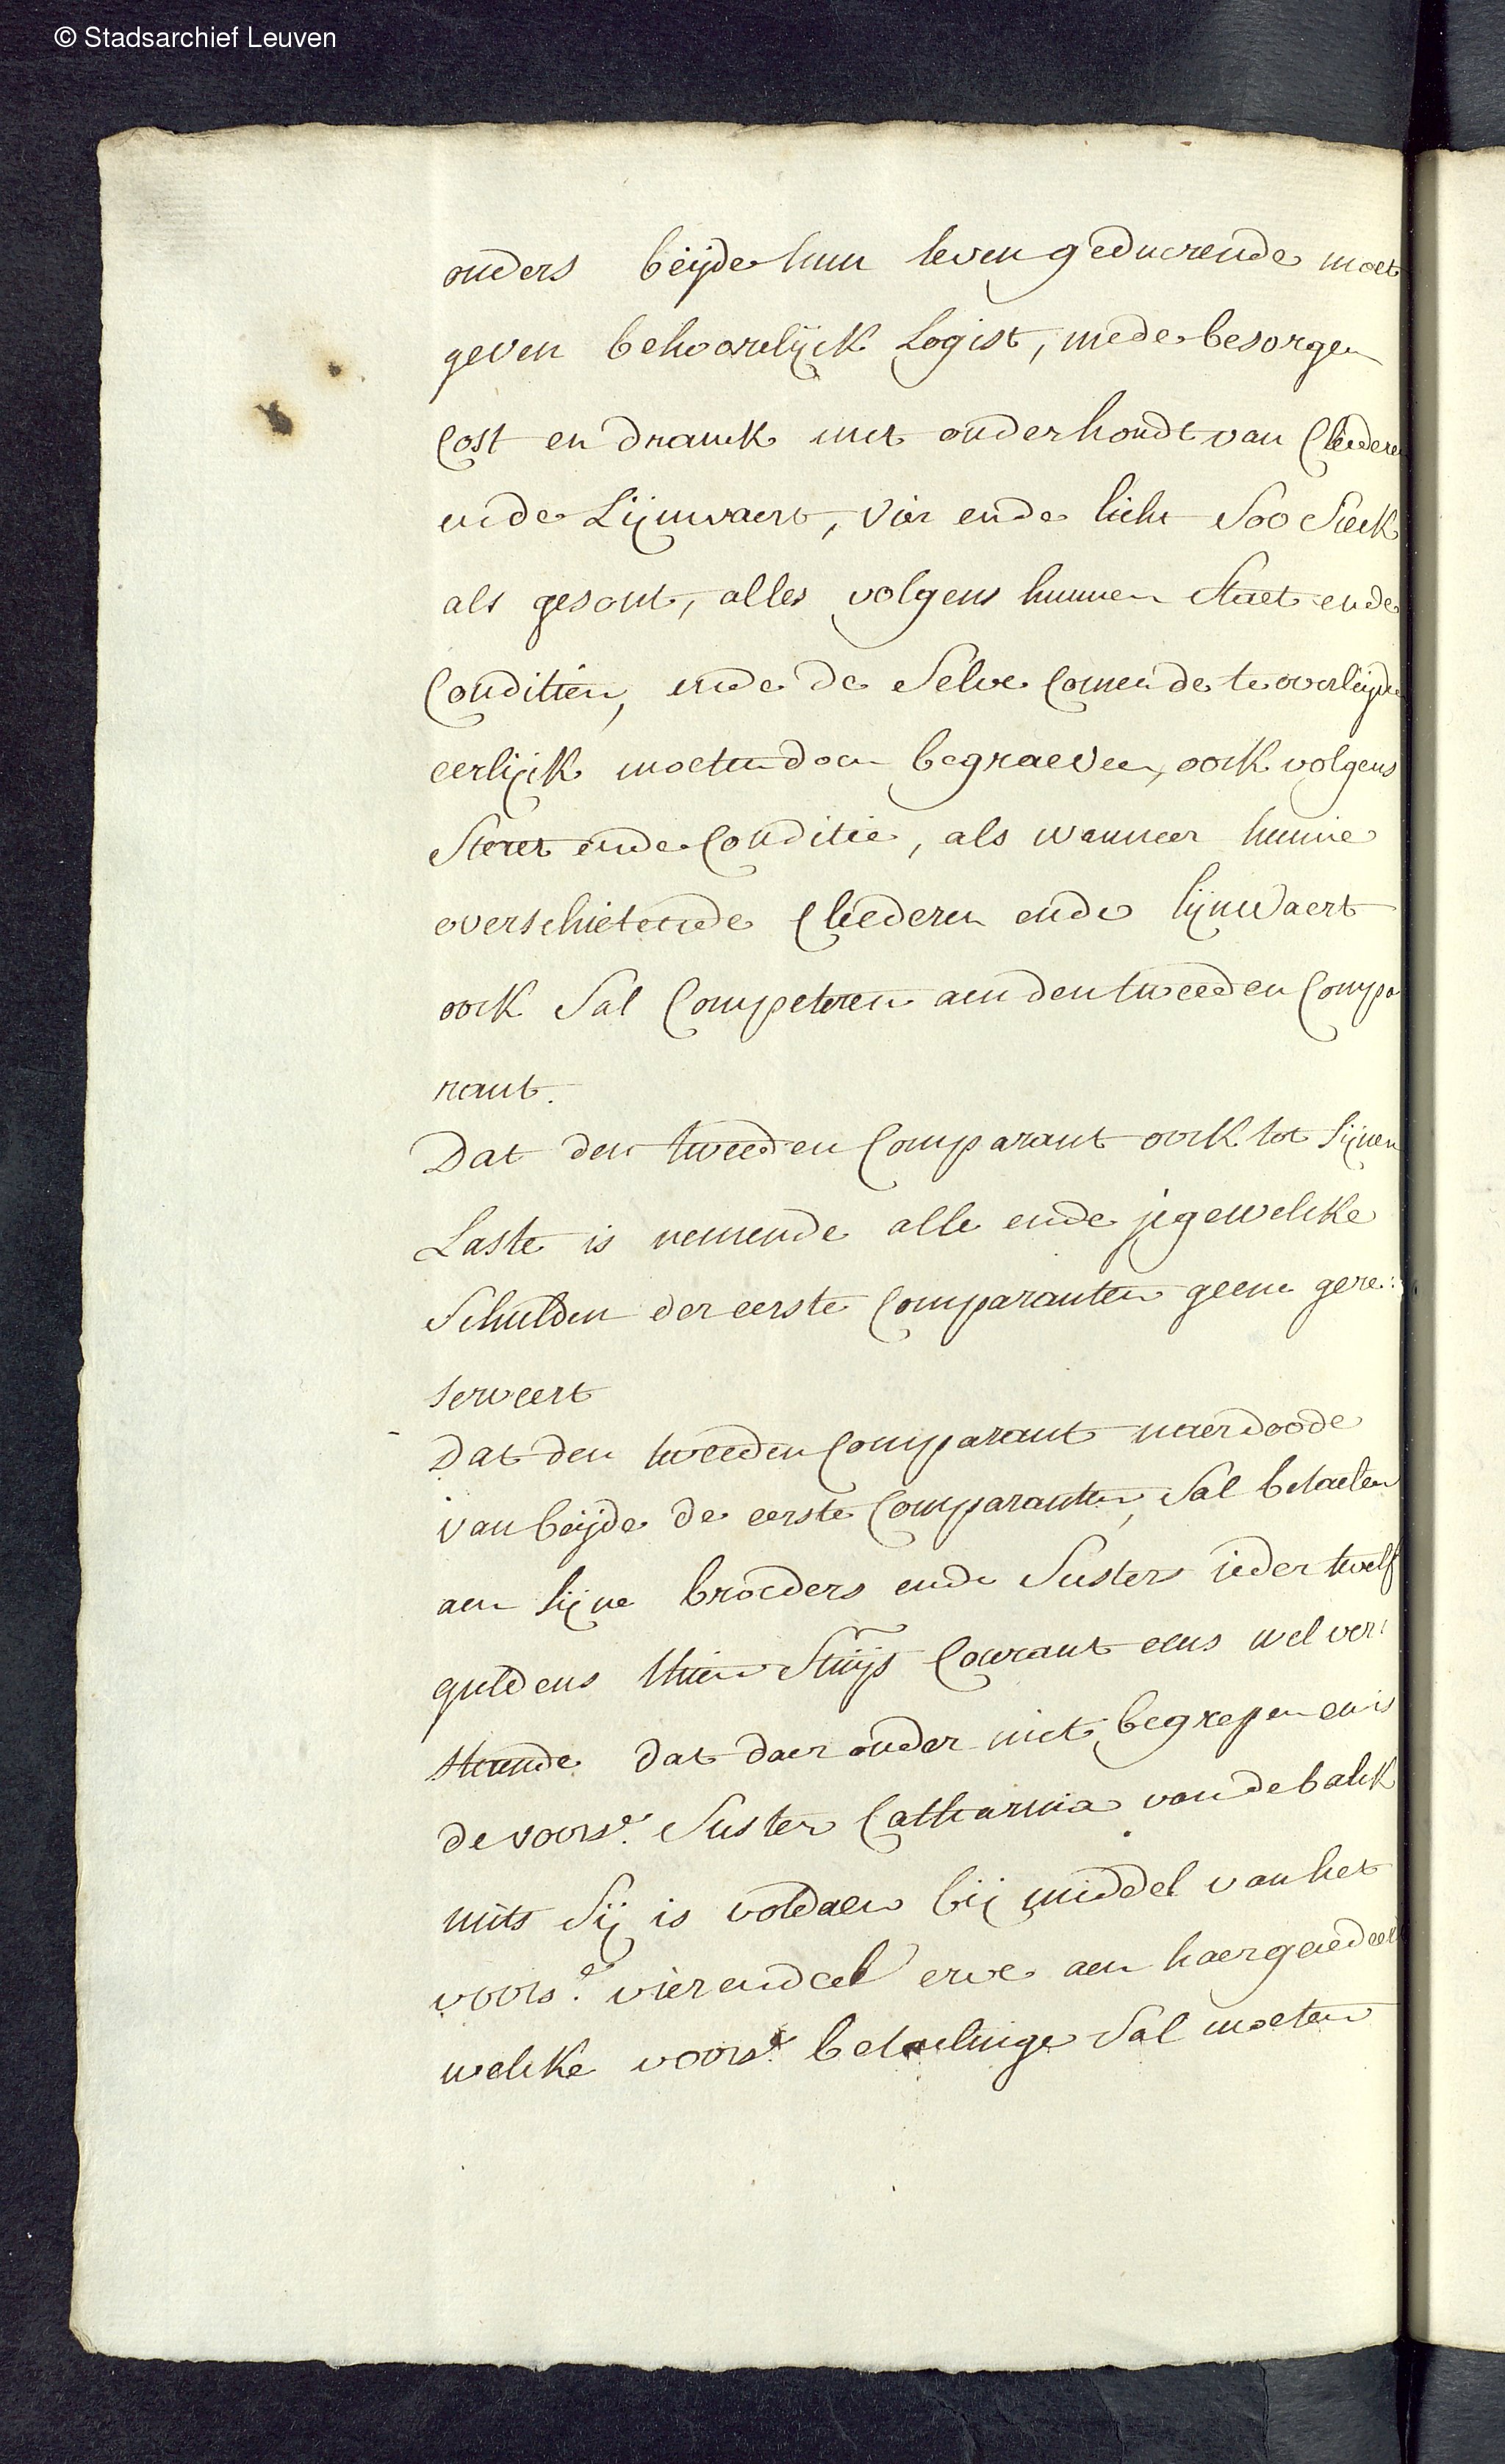 © Stadsarchief Leuven
ouders beijde hun leven geduerende moet
geven behoorelijck Logist, mede besorgen
Cost en dranck met onderhoudt van Cleederen
ende Lijnwaert, vier ende licht Soo Sieck
als gesont, alles volgens hunnen Staet ende
Conditien, ende de Selve Comende te overleijden
eerlijck moeten doen begraeven, oock volgens
Staet ende Conditie, als wanneer hunne
overschietende Cleederen ende lijnwaert
oock Sal Competeren aen den tweeden Compa
rant.
Dat den tweeden Comparant oock tot Sijnen
Laste is nemende alle ende jegewelcke
Schulden der eerste Comparanten geene gere:
serveert
Dat den tweeden Comparant naer doode
van beijde de eerste Comparanten, Sal betaelen
aen sijne broeders ende Susters ieder twelf
guldens thien Stuijs Courant eens wel ver:
staende dat daer onder niet begrepen en is
de voors.e Suster Catharina van de balck
mits Sij is voldaen bij middel van het
voors.e vierendeel erve aen haer gecedeert
welcke voors.e betaelinge Sal moeten